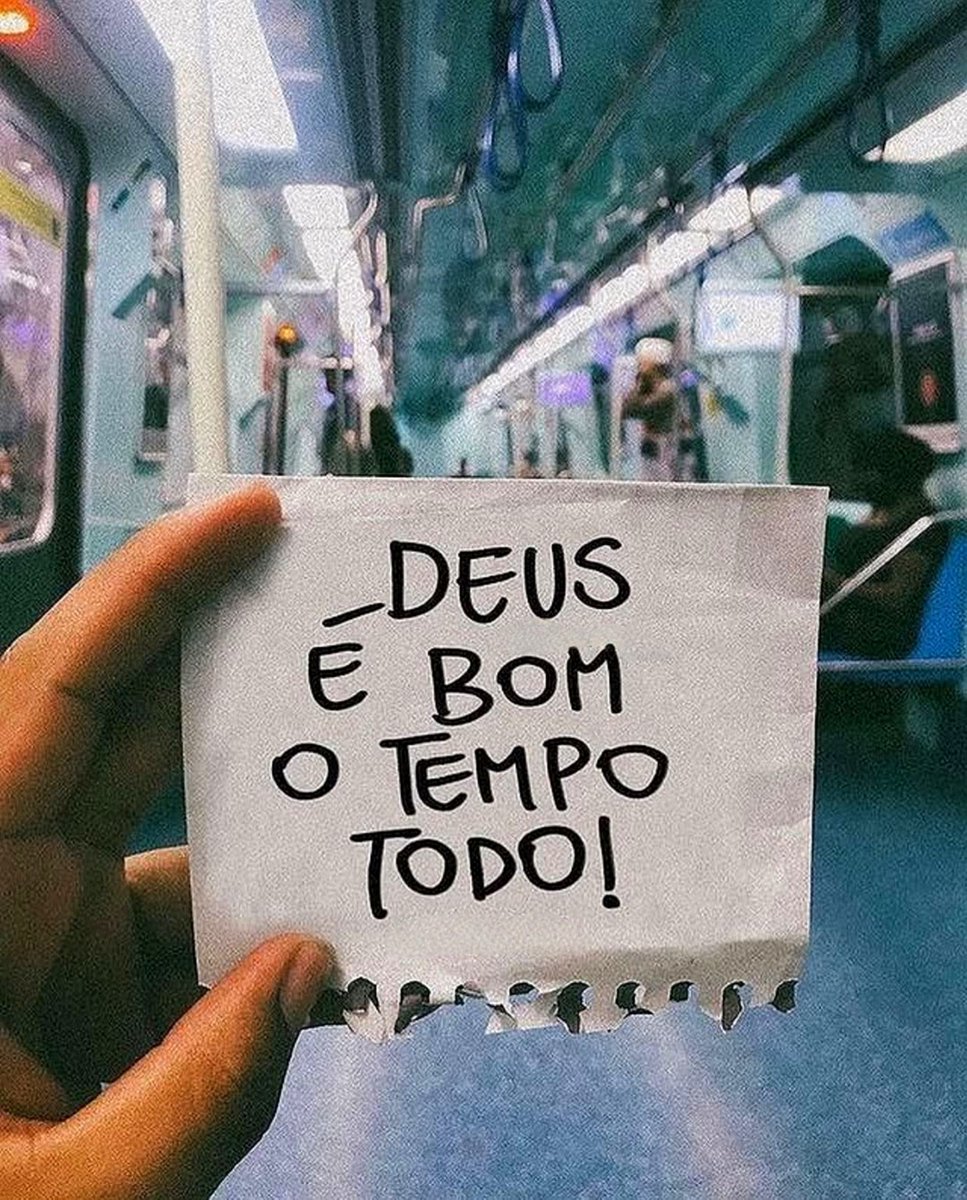 _DEUS
É BOM
O TEMPO
TODO!